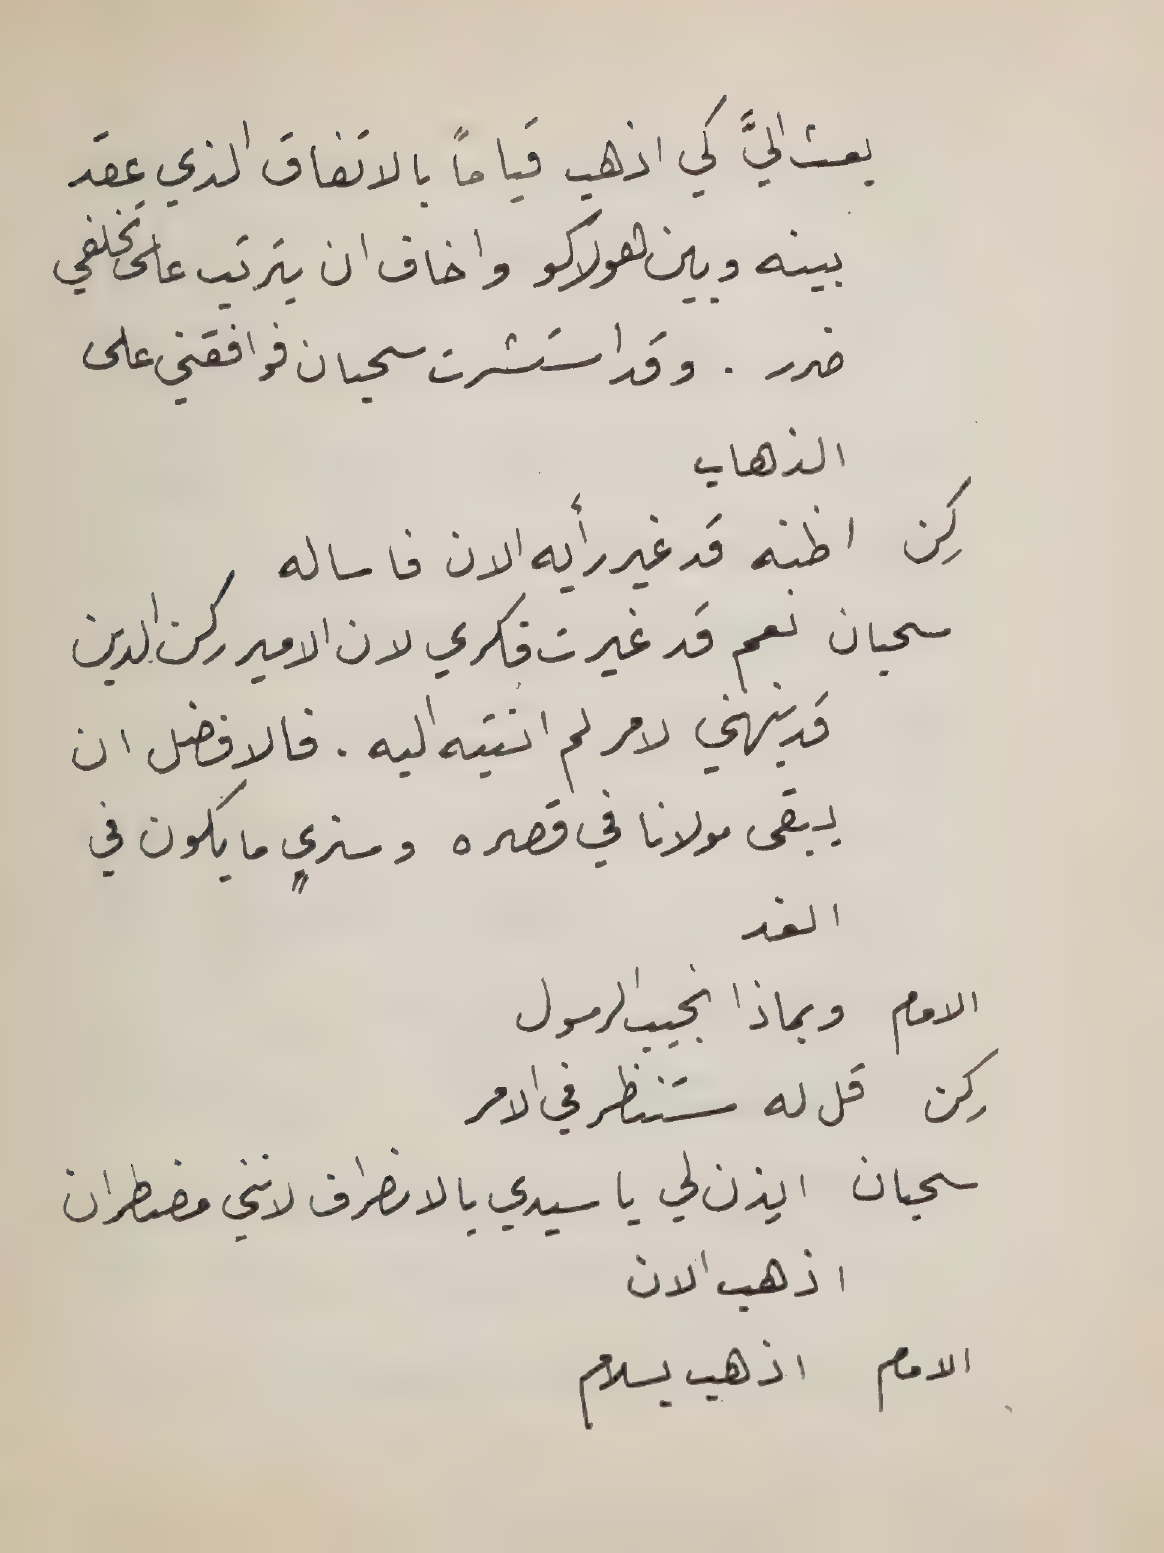 يبعث اليَّ كي اذهب قياماً بالاتفاق الذي عقد
بينه وبين هولاكو واخاف ان يترتب على تخلفي
ضرر . وقد استشرت سحبان فوافقني على
الذهاب
ركن اظنه قد غير رأيه الان فاساله
سحبان نعم قد غيرت فكري لان الامير ركن الدين
قد ينبهني لامر لم انتبه اليه . فالافضل ان
يبقى مولانا في قصره وسنري ما يكون في
الغد
الامام وبماذا نجيب الرسول
ركن قل له سننظر في الامر
سحبان ايذن لي يا سيدي بالانصراف لانني مضطر ان
اذهب الان
الامام اذهب بسلام